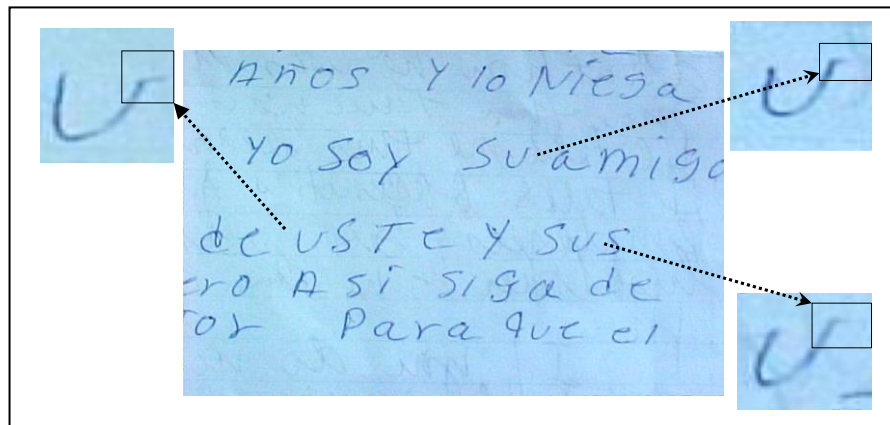 Años Y lo Niega
Yo Soy Su amigo
de uSTe Y Sus
ero A si siga de
Tor Para que el